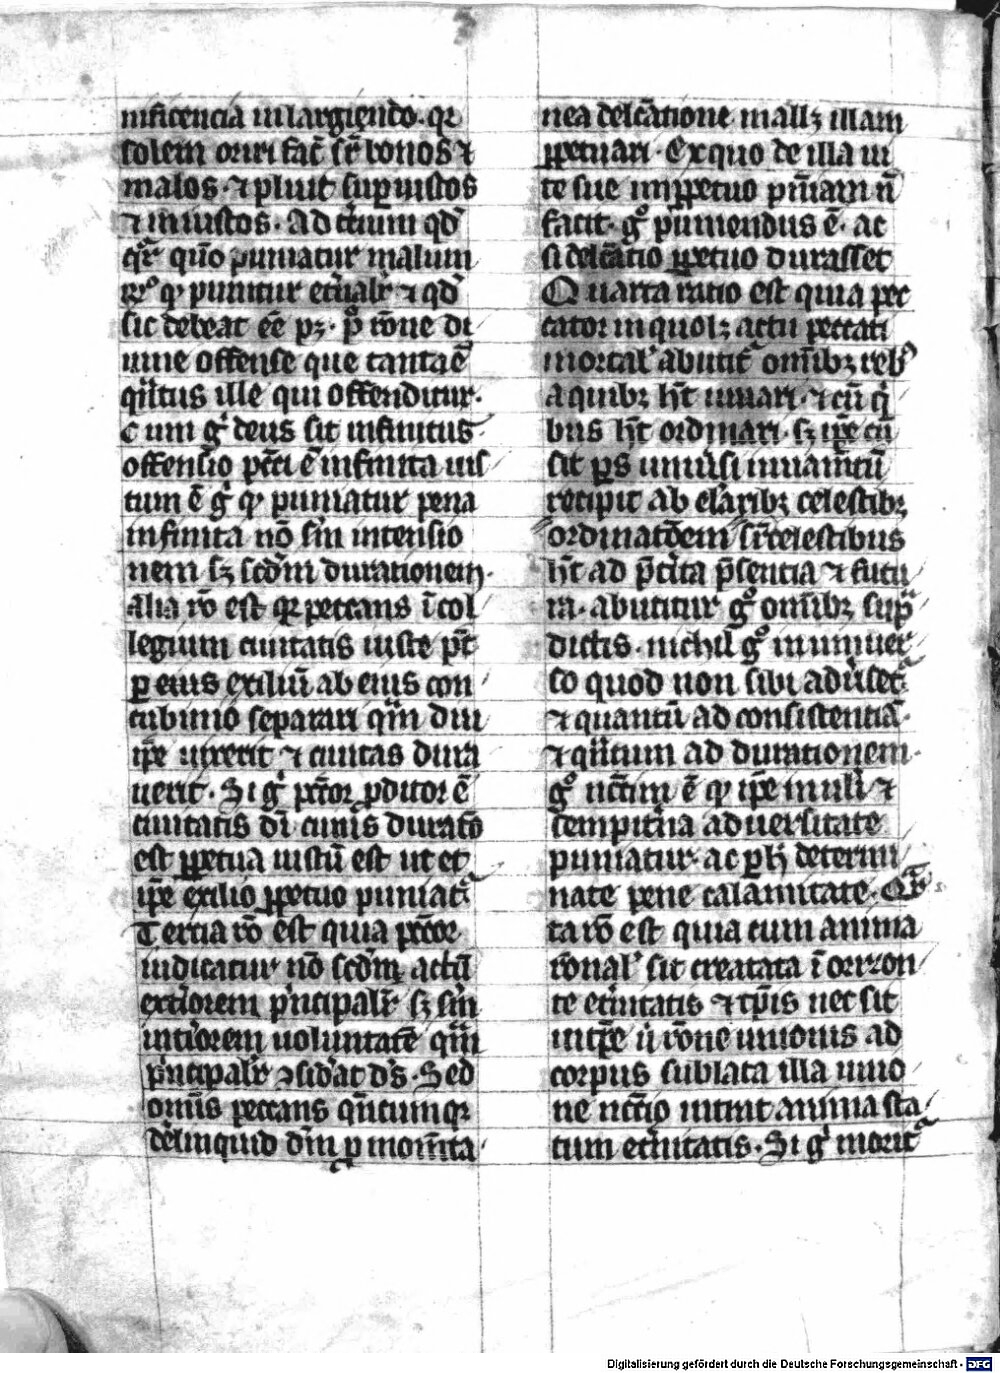 nificencia in largiendo. qꝛ
solem oriri fac̄ sr̄ bonos ⁊
malos. ⁊ pluit suꝑ iustos
⁊ iniustos. Ad tͥcium qd̓
qͥr̄ quō puniatur malum
qꝙ punitur et̓nalr̄ ⁊ qd̓
sic debeat ēē pꝫ. pͦ rōne di
uine offense que tanta ē
qn̄tus ille qui offenditur.
Cum gͦ deus sit infinitus
offensio pctī ē infinita ius
tum ē gͦ ꝙ puniatur pena
infinita nō sm̄ intensio
nem sꝫ scd̓m durationem.
alia rō est qꝛ peccans ī col
legium ciuitatis iuste pt̄
ꝑ eius exiliū ab eius con
tubinio separari qm̄ diu
ip̄e uixerit ⁊ ciuitas dura
uerit. Si gͦ pctōr ꝓditor ē
ciuitatis dī cuiꝰ duratō
est ꝑpetua iustū est ut et
ip̄e exilio ꝑpetuo puniat᷑
Tercia rō est quia pctōr
iudicatur nō scd̓m actū
ext̓iorem pͥncipalr̄ sꝫ sm̄
int̓iorem uoluntatē qm̄
pͥncipalr̄ ꝯsid̓at dꝰ. Sed
omīs peccans qn̄tumqꝛ
delinquid dn̄i ꝑ momn̄ta
nea delcātione mallꝫ illam
ꝑpetuari. Ex quo de illa ui
te sue inꝑpetuo pn̄iam nͫ
facit. gͦ puniendus ē. ac
si delcātio ꝑpetuo durasset
Quarta ratio est quia pec
cator in quolꝫ actu peccati
mortalͥ abutit᷑ om̄ibꝫ rebꝰ
a quibꝫ ht̄ iuuari. ⁊ cū qͥ
bus ht̄ ordinari. sꝫ ip̄e cū
sit ps̄ uniu̓si iuuam̄tū
recipit ab elar̄ibꝫ celestibꝫ
ordinatōem sr̄celestibus
ht̄ ad pt̄cita pn̄sentia ⁊ futu
ra. abutitur gͦ om̄ibꝫ supͣ
dictis. nichil gͦ in uniuer
so quod non sibi adu̓set᷑
⁊ quantū ad consistentiā
⁊ qn̄tum ad durationem.
gͦ nc̄tm ē ꝙ ip̄e mul̓i ⁊
sempit̓na aduersitate
puniatur. ac ꝑ hͦ determi
nate pene calamitate. Qͥn
ta rō est quia cum anima
rōnalͥ sit creatata ī orizon
te et̓nitatis ⁊ tp̄is nec sit
in tp̄re ū rōne unionis ad
corpus sublata illa unio
ne nct̄io intrat anima sta
tum et̓nitatis. Si gͦ morit᷑
Digitalisierung gefördert durch die Deutsche Forschungsgemeinschaft - DFG